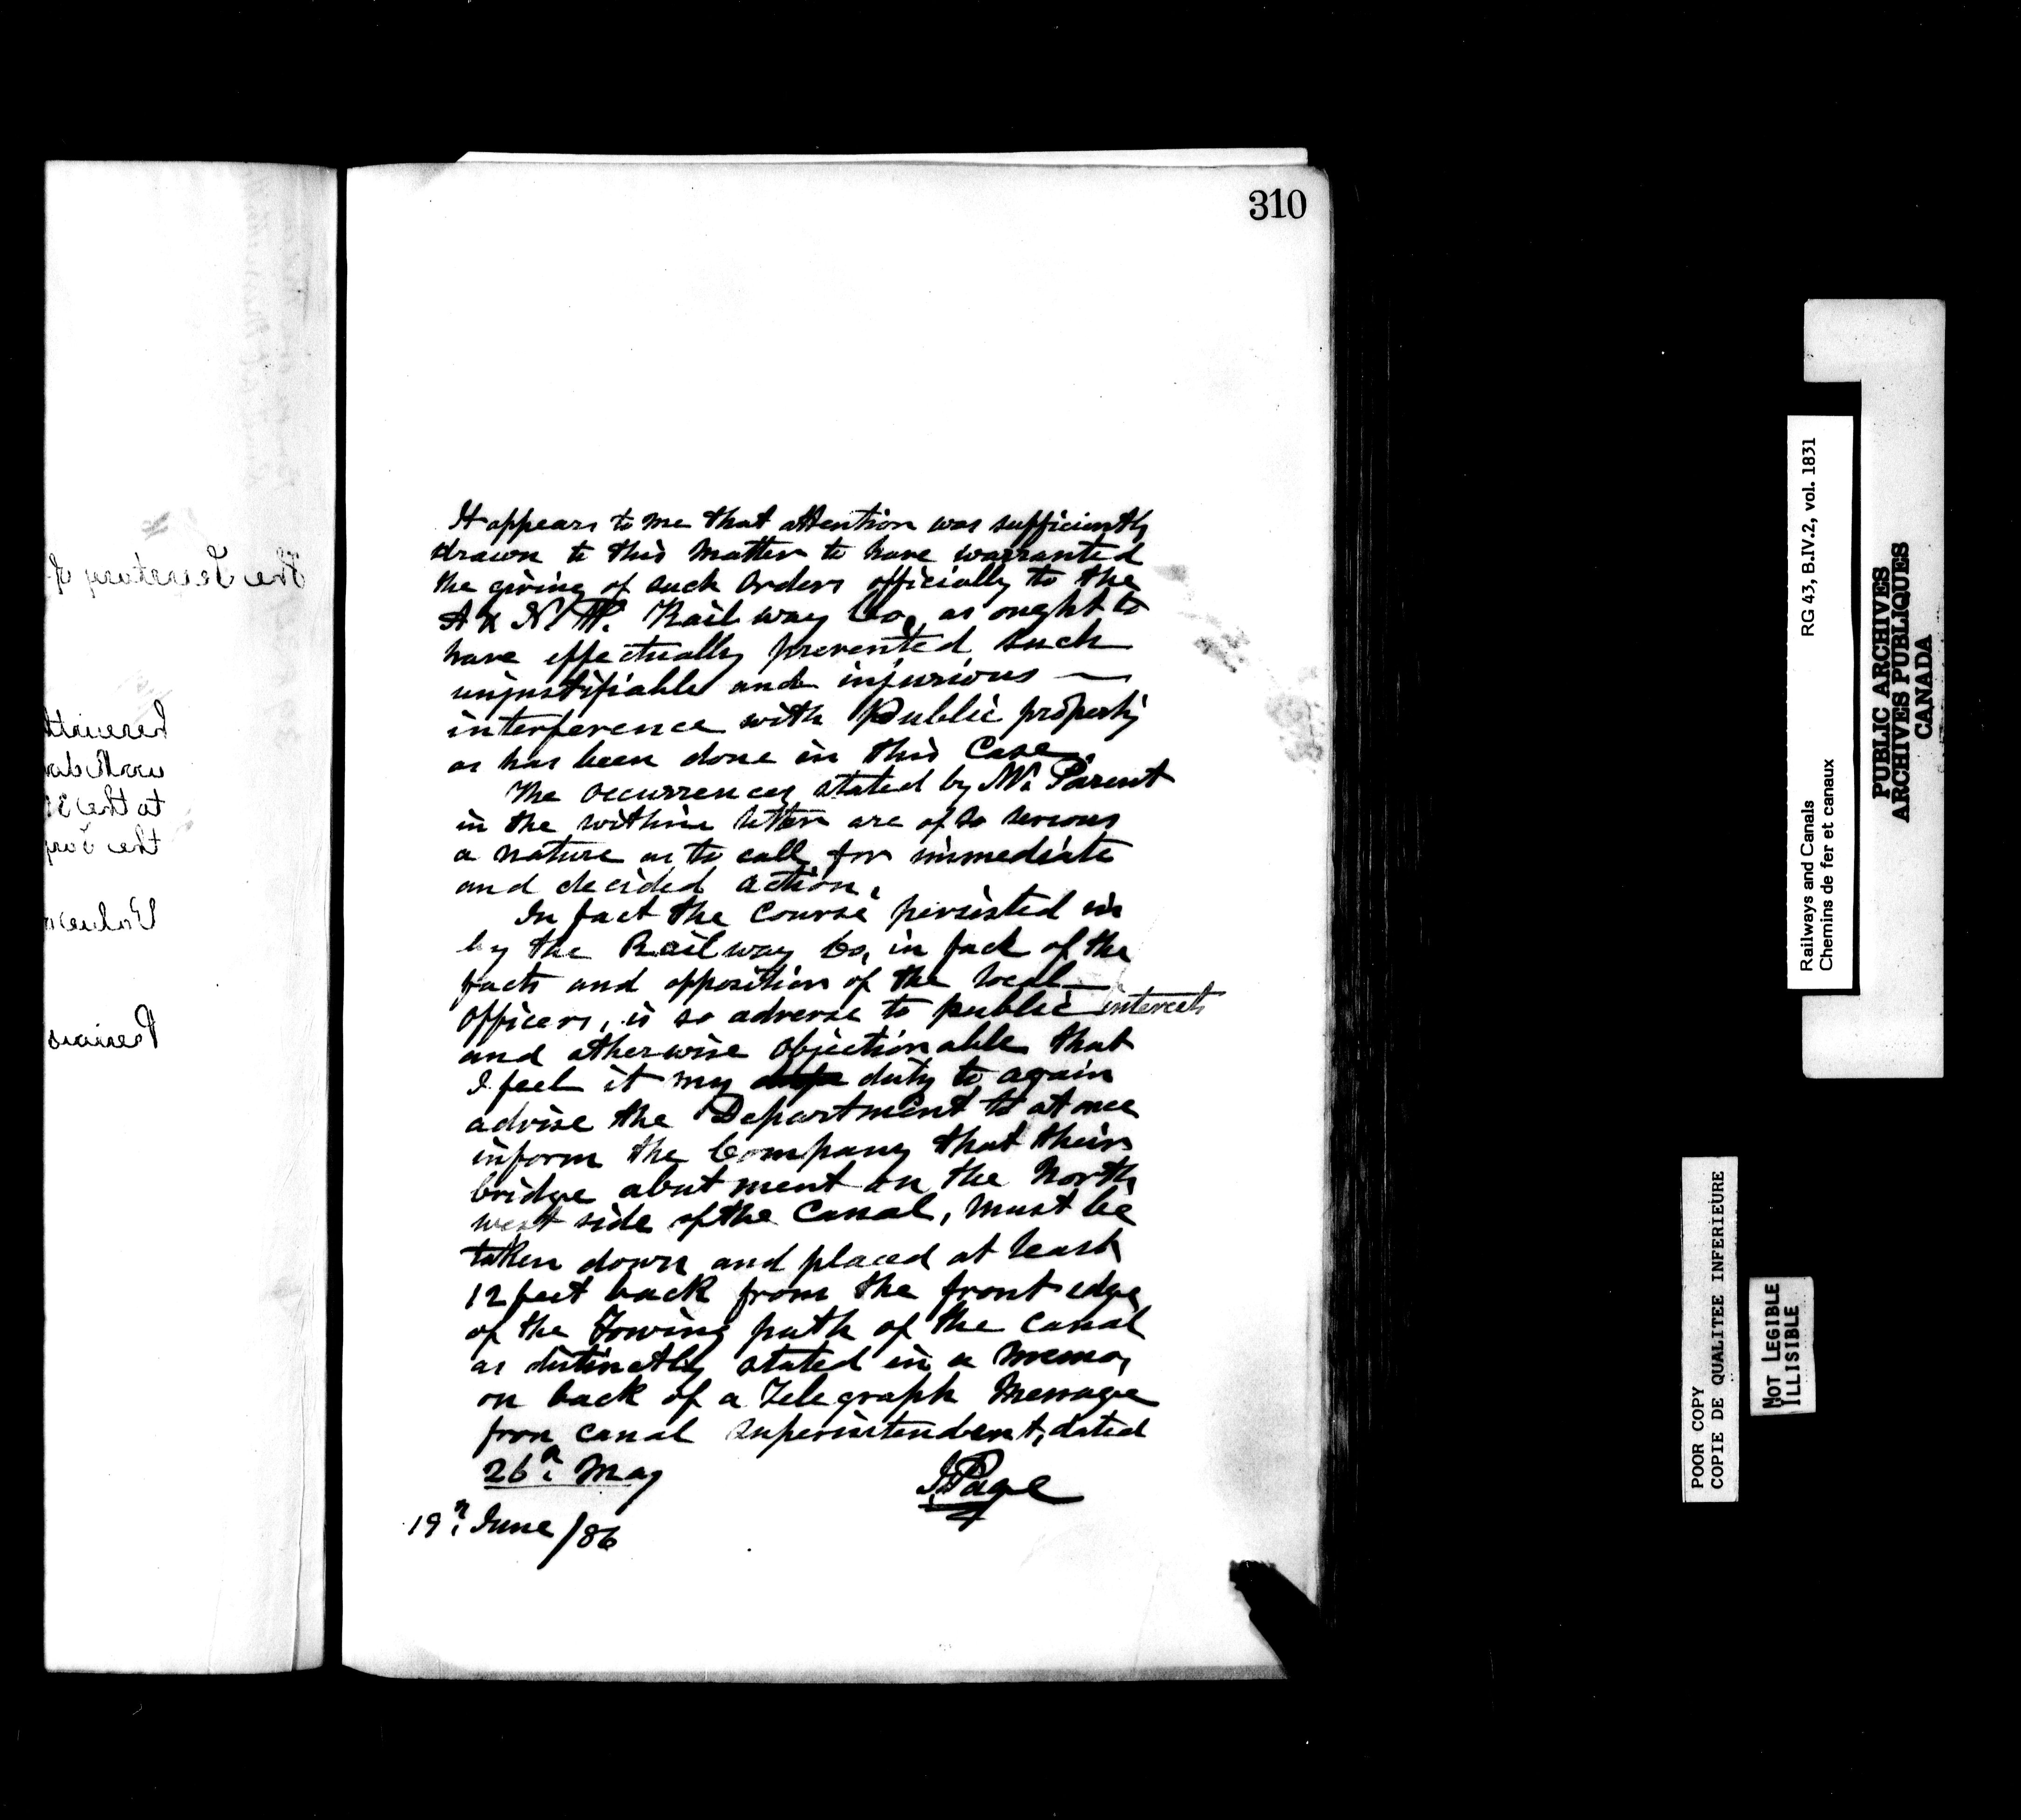 310
It appears to me that attention was sufficiently
drawn to this matter to have warranted
the giving of such orders officially to the
A & N. W. Railway Co, as ought to
have effectually prevented such
unjustifiable and injurious —
interference with Public property
as has been done in this Case.
The occurrences stated by Mr. Parent
in the within letter are of so serious
a nature as to call for immediate
and decided action.
In fact the Course persisted in
by the Railway Co, in face of the
facts and opposition of the local —
Officers, is so adverse to public interests
and otherwise objectionable that
I feel it my duty to again
advise the Department to at once
inform the Company that their
bridge abutment on the North
west side of the Canal, must be
taken down and placed at least
12 feet back from the front edge
of the Towing path of the Canal
as distinctly stated in a memo,
on back of a Telegraph Message
from Canal Superintendent, dated
26th May
J Page
19th June /86
RG 43, B.IV.2, vol. 1831
Railways and Canals
Chemins de fer et canaux
PUBLIC ARCHIVES
ARCHIVES PUBLIQUES
CANADA
POOR COPY
COPIE DE QUALITEE INFERIEURE
NOT LEGIBLE
ILLISIBLE